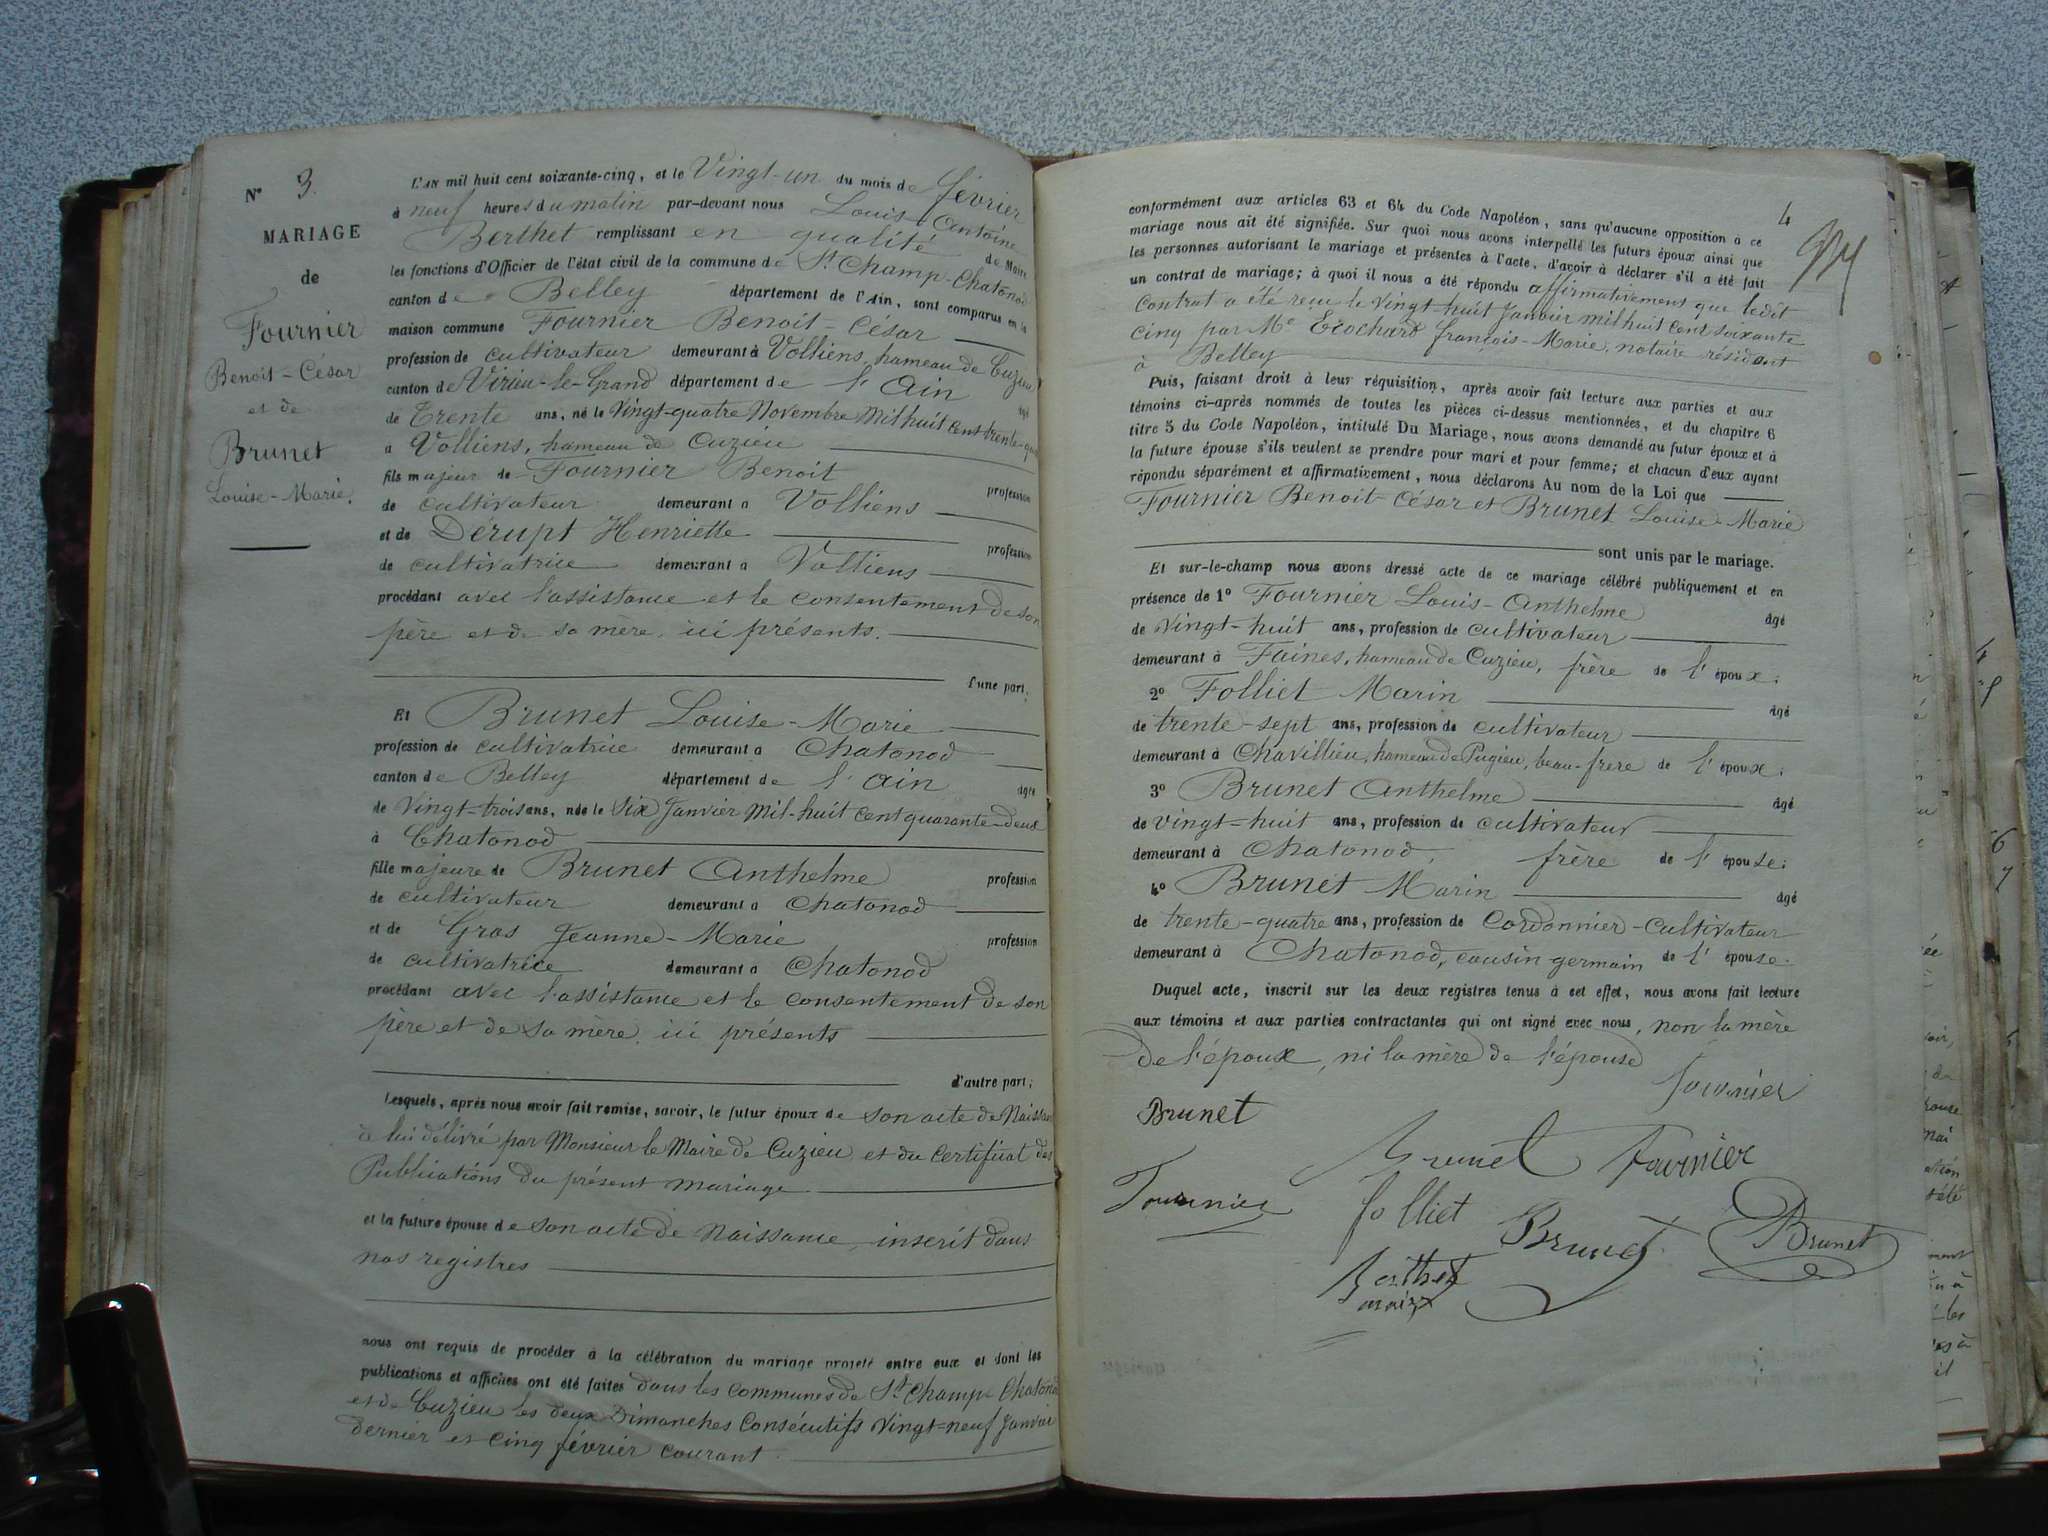 N° 3.
MARIAGE
de
Fournier
Benoit-César
et de
Brunet
Louise-Marie.
L'AN mil huit cent soixante-cinq, et le Vingt-un du mois de février
à neuf heures du matin par-devant nous Louis Antoine
Berthet remplissant en qualité de Maire
les fonctions d'Officier de l'état civil de la commune de St Champ-Chatonod
canton de Belley département de l'Ain, sont comparus en la
maison commune Fournier Benoit-César
profession de cultivateur demeurant à Volliens, hameau de Cuzieu
canton de Virieu-le-Grand département de l'Ain âgé
de Trente ans, né le Vingt-quatre Novembre Mil huit cent trente-qua
à Volliens, hameau de Cuzieu
fils majeur de Fournier Benoit profession
de cultivateur demeurant à Volliens
et de Dérupt Henriette profession
de cultivatrice demeurant à Volliens
procédant avec l'assistance et le consentement de son
père et de sa mère, ici présents.
l'une part;
Et Brunet Louise-Marie
profession de cultivatrice demeurant à Chatonod
canton de Belley département de l'Ain âgée
de Vingt-trois ans, née le Six Janvier Mil-huit cent quarante-deux
à Chatonod
fille majeure de Brunet Anthelme profession
de cultivateur demeurant à Chatonod
et de Gros Jeanne-Marie profession
de cultivatrice demeurant à Chatonod
procédant avec l'assistance et le consentement de son
père et de sa mère, ici présents
d'autre part;
Lesquels, après nous avoir fait remise, savoir, le futur époux de son acte de Naissan
ce lui délivré par Monsieur le Maire de Cuzieu et du certificat des
Publications du présent mariage
et la future épouse de son acte de Naissance, inscrit dans
nos registres
nous ont requis de procéder à la célébration du mariage projeté entre eux et dont les
publications et affiches ont été faites dans les communes de St Champ-Chatonod
et de Cuzieu les deux Dimanches Consécutifs Vingt-neuf Janvier
dernier et cinq février courant.
4
conformément aux articles 63 et 64 du Code Napoléon, sans qu'aucune opposition à ce
mariage nous ait été signifiée. Sur quoi nous avons interpellé les futurs époux ainsi que
les personnes autorisant le mariage et présentes à l'acte, d'avoir à déclarer s'il a été fait
un contrat de mariage; à quoi il nous a été répondu affirmativement que ledit
Contrat a été reçu le vingt-huit Janvier mil huit cent soixante
cinq par Me Ecochard françois-Marie, notaire résidant
à Belley
Puis, faisant droit à leur réquisition, après avoir fait lecture aux parties et aux
témoins ci-après nommés de toutes les pièces ci-dessus mentionnées, et du chapitre 6
titre 5 du Code Napoléon, intitulé Du Mariage, nous avons demandé au futur époux et à
la future épouse s'ils veulent se prendre pour mari et pour femme; et chacun d'eux ayant
répondu séparément et affirmativement, nous déclarons Au nom de la Loi que
Fournier Benoit-César et Brunet Louise-Marie
sont unis par le mariage.
Et sur-le-champ nous avons dressé acte de ce mariage célébré publiquement et en
présence de 1° Fournier Louis-Anthelme âgé
de vingt-huit ans, profession de cultivateur
demeurant à Faines, hameau de Cuzieu, frère de l'époux.
2° Folliet Marin âgé
de trente-sept ans, profession de cultivateur
demeurant à Chavillieu, hameau de Pugieu, beau-frère de l'époux;
3° Brunet Anthelme âgé
de vingt-huit ans, profession de cultivateur
demeurant à Chatonod, frère de l'épouse;
4° Brunet Marin âgé
de trente-quatre ans, profession de Cordonnier-cultivateur
demeurant à Chatonod, cousin germain de l'épouse.
Duquel acte, inscrit sur les deux registres tenus à cet effet, nous avons fait lecture
aux témoins et aux parties contractantes qui ont signé avec nous, non la mère
de l'époux, ni la mère de l'épouse
Fournier
Brunet
Brunet Fournier
Fournier Folliet Brunet Brunet
Berthet
maire